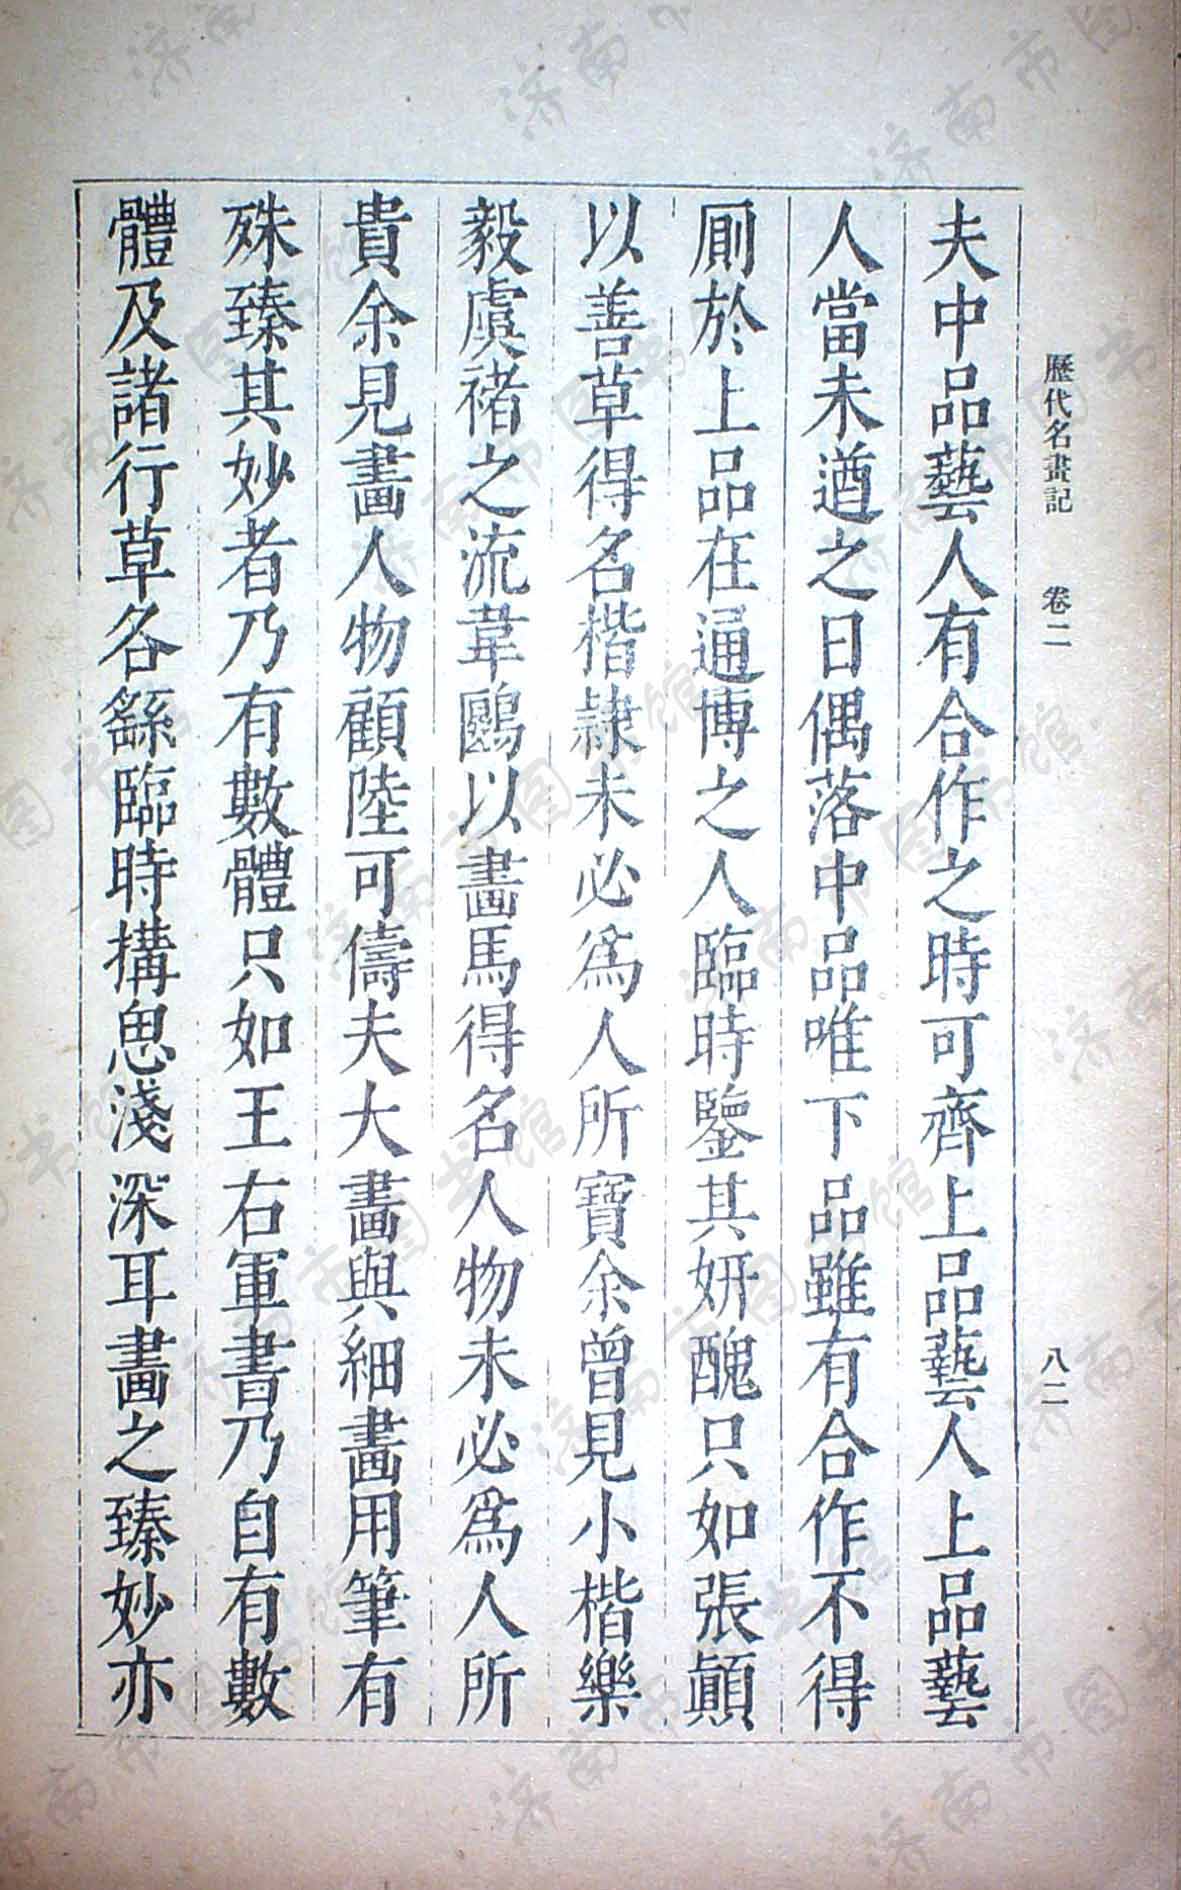 歷代名畫記　卷二　八二
夫中品藝人有合作之時可齊上品藝人上品藝
人當未遒之日偶落中品唯下品雖有合作不得
廁於上品在通博之人臨時鑒其妍醜只如張顛
以善草得名楷隸未必爲人所寶余曾見小楷樂
毅虞褚之流韋鷗以畫馬得名人物未必爲人所
貴余見畫人物顧陸可儔夫大畫與細畫用筆有
殊臻其妙者乃有數體只如王右軍書乃自有數
體及諸行草各繇臨時構思淺深耳畫之臻妙亦
济南市图书馆